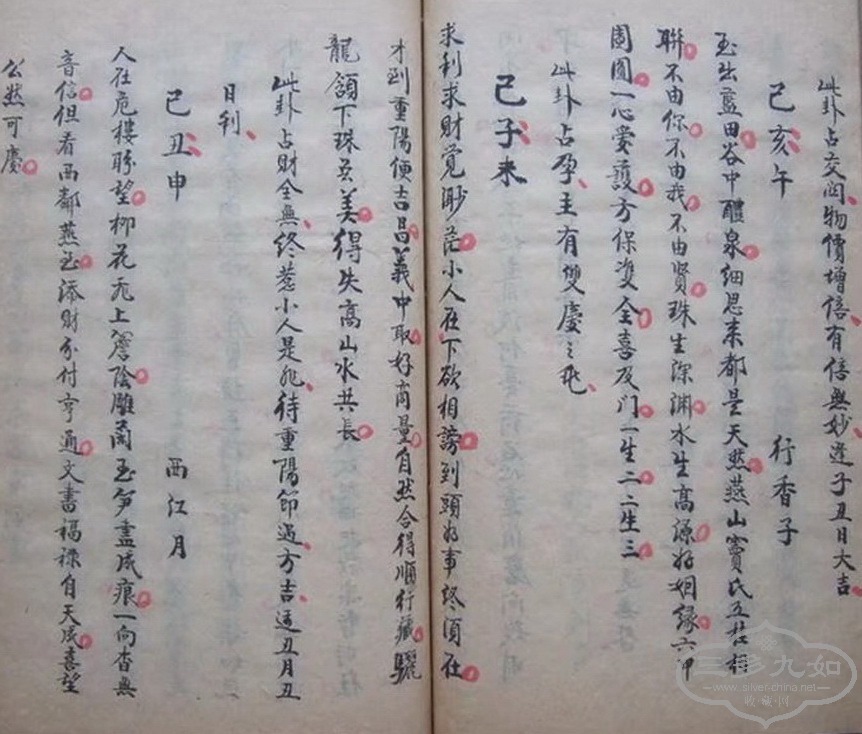 此卦占交関物價增倍有倍無妙逢子丑日大吉
己亥午 行香子
玉出藍田谷中醴泉細思來都是天然燕山竇氏五桂
聯不由你不由我不由賢珠生深淵水生高源好姻緣六甲
團圓一心要護方保双全喜及门一生二二生三
此卦占孕主有雙慶之兆
己子未
求利求財覓渺茫小人在下欲相謗到頭好事終須在
才到重陽便吉昌義中取好商量自然合得順行藏驪
龍頷下珠美得失高山水共長
此卦占財全無終惹小人是非待重陽節過方吉逢丑月丑
日利
己丑申 西江月
人在危樓盼望柳花飛上簷陰雕蘭玉笋盡成痕一向杳無
音信但看西鄰燕至添財分付亨通文書福祿自天成喜望
公然可慶
三彩九如
www.silver-china.net
收藏